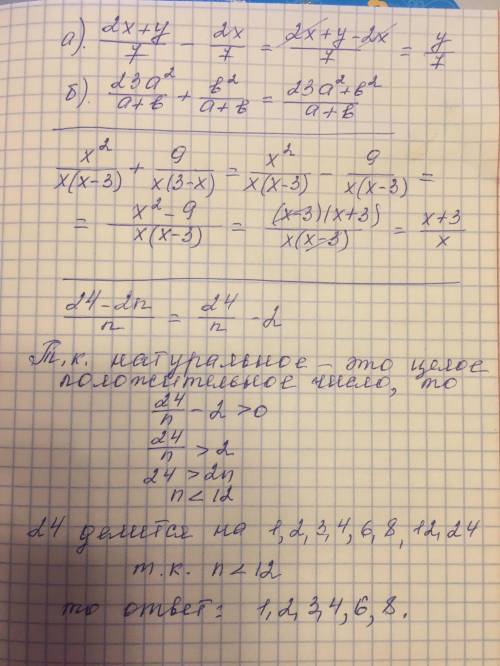 а). (2x+y)/7 - 2x/7 = (2x+y-2x)/7 = y/7
б). 23a²/(a+b) + b²/(a+b) = (23a²+b²)/(a+b)
x²/(x(x-3)) + 9/(x(3-x)) = x²/(x(x-3)) - 9/(x(x-3)) =
= (x²-9)/(x(x-3)) = ((x-3)(x+3))/(x(x-3)) = (x+3)/x
(24-2n)/n = 24/n - 2
Т.к. натуральное - это целое
положительное число, то
24/n - 2 > 0
24/n > 2
24 > 2n
n < 12
24 делится на 1, 2, 3, 4, 6, 8, 12, 24
т.к. n < 12
то ответ: 1, 2, 3, 4, 6, 8.